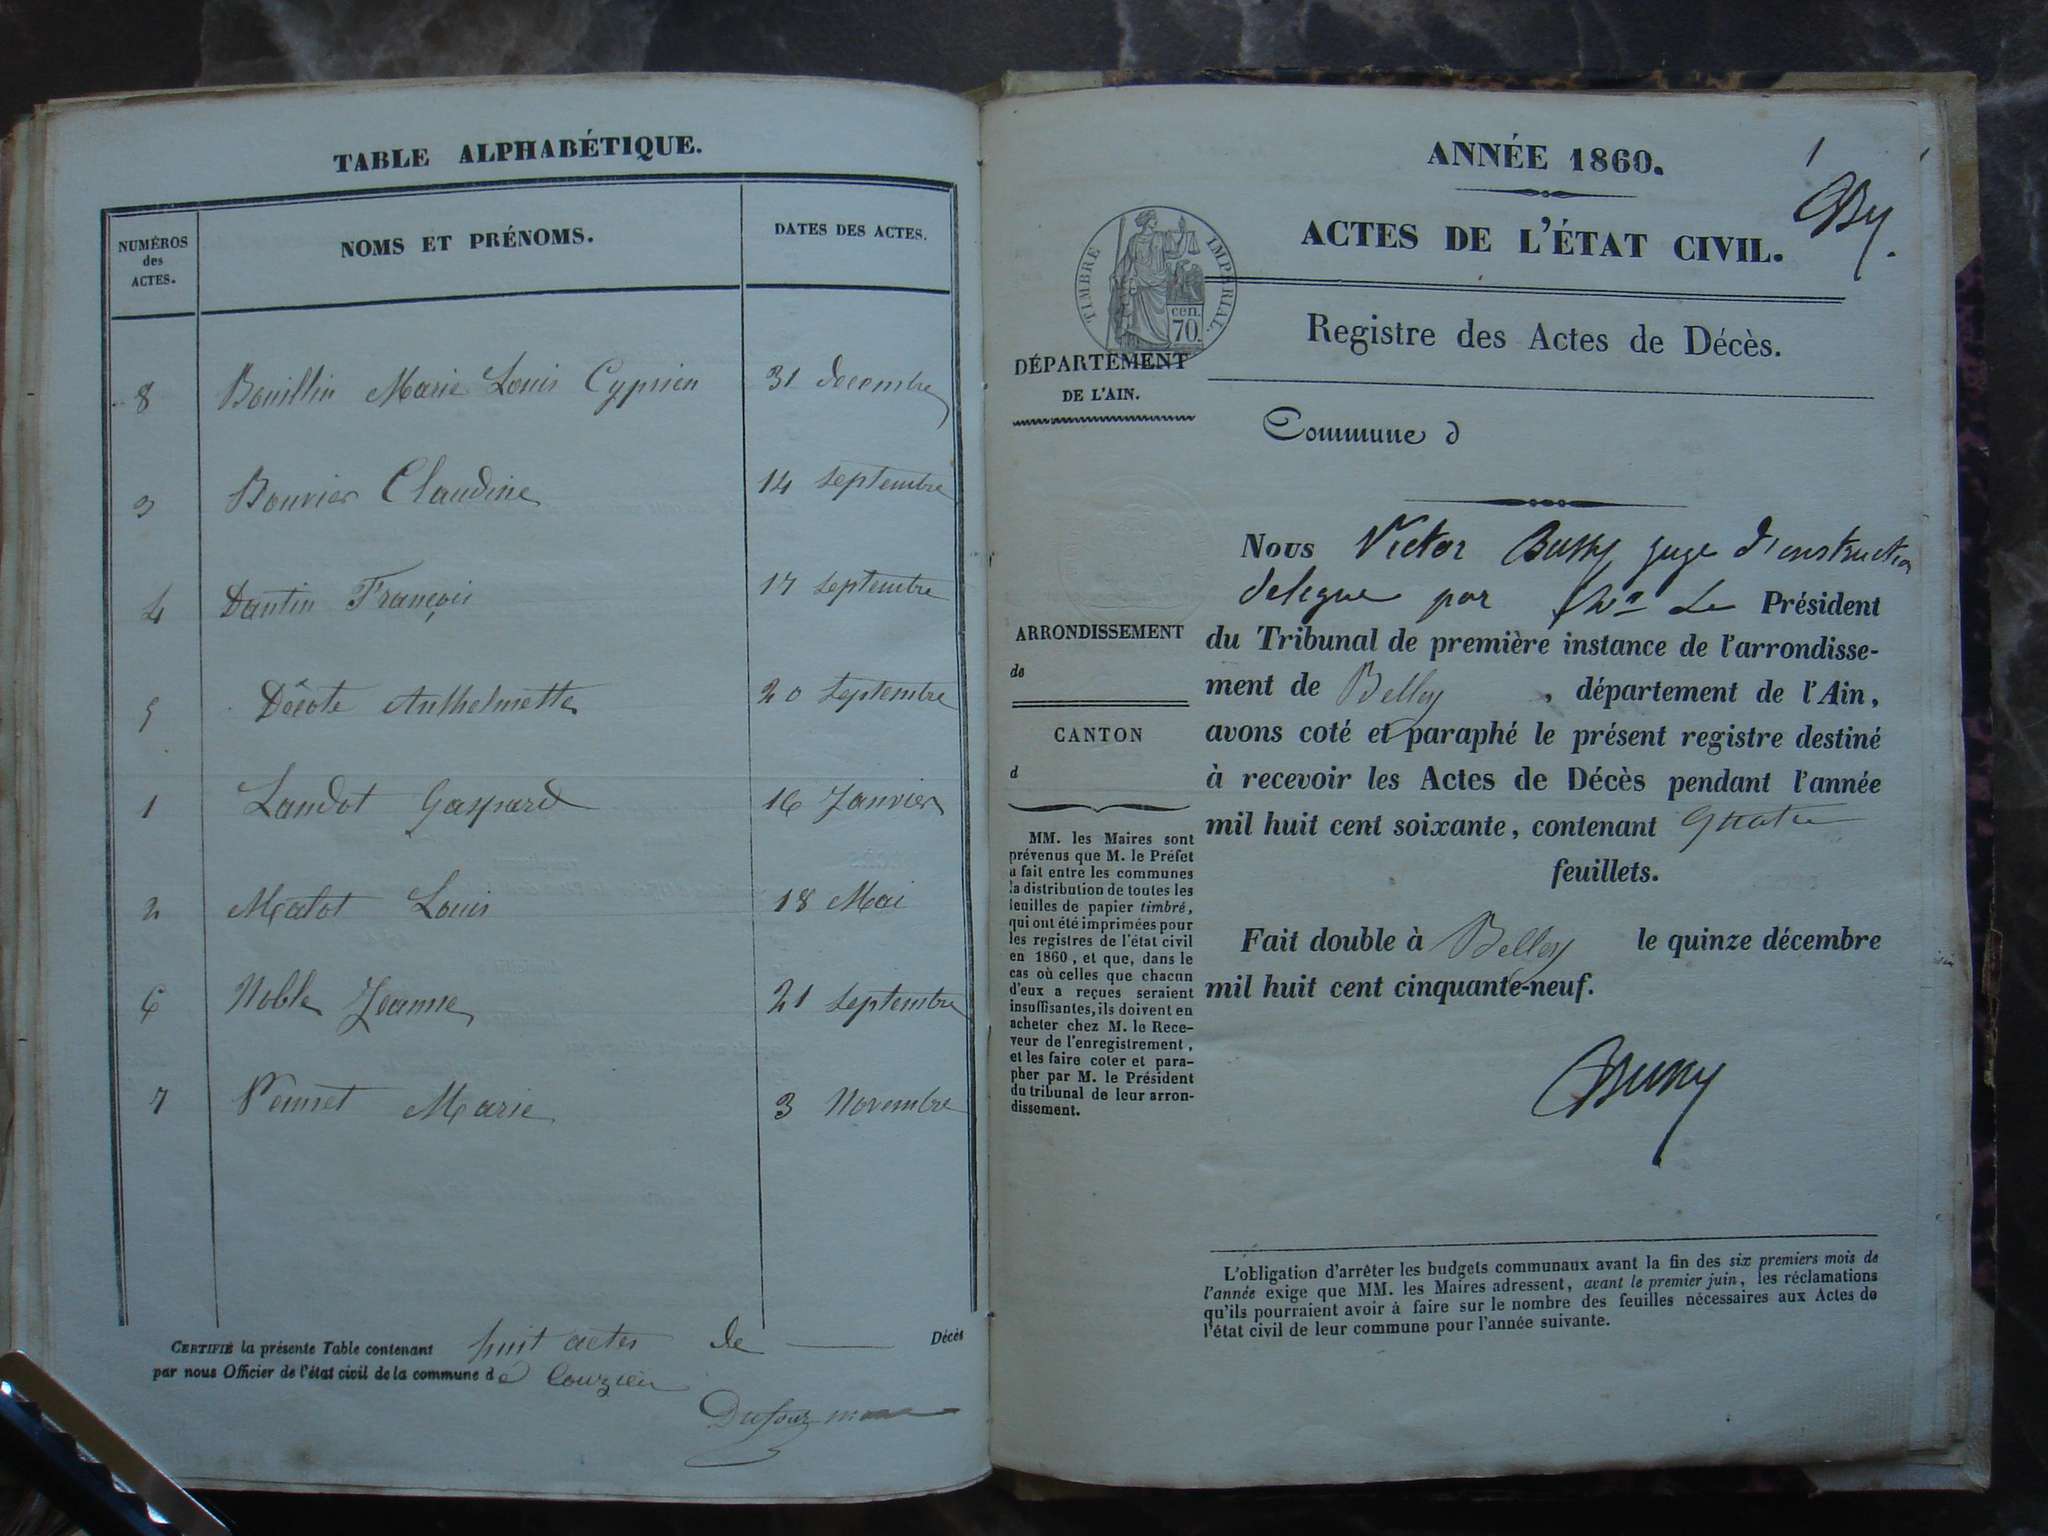 TABLE ALPHABÉTIQUE.
NUMÉROS des ACTES.
NOMS ET PRÉNOMS.
DATES DES ACTES.
8 Bouillin Marie Louis Cyprien 31 decembre
3 Bouvier Claudine 14 septembre
4 Dantin François 17 septembre
5 Décote Anthelmette 20 septembre
1 Landot Gaspard 16 Janvier
2 Malot Louis 18 Mai
6 Noble Jeanne 21 septembre
7 Marie 3 Novembre
CERTIFIÉ la présente Table contenant huit actes de Décès
par nous Officier de l'état civil de la commune de Couzieu
Dufour maire
ANNÉE 1860.
1
ACTES DE L'ÉTAT CIVIL.
TIMBRE IMPÉRIAL.
cen.
70.
Registre des Actes de Décès.
DÉPARTEMENT
DE L'AIN.
Commune d
Nous Victor Bussy juge d'instruction
delegue par Le Président
du Tribunal de première instance de l'arrondisse-
ment de Belley, département de l'Ain,
avons coté et paraphé le présent registre destiné
à recevoir les Actes de Décès pendant l'année
mil huit cent soixante, contenant quatre
feuillets.
Fait double à Belley le quinze décembre
mil huit cent cinquante-neuf.
Bussy
ARRONDISSEMENT
de
CANTON
d
MM. les Maires sont
prévenus que M. le Préfet
a fait entre les communes
la distribution de toutes les
feuilles de papier timbré,
qui ont été imprimées pour
les registres de l'état civil
en 1860, et que, dans le
cas où celles que chacun
d'eux a reçues seraient
insuffisantes, ils doivent en
acheter chez M. le Rece-
veur de l'enregistrement,
et les faire coter et para-
pher par M. le Président
du tribunal de leur arron-
dissement.
L'obligation d'arrêter les budgets communaux avant la fin des six premiers mois de
l'année exige que MM. les Maires adressent, avant le premier juin, les réclamations
qu'ils pourraient avoir à faire sur le nombre des feuilles nécessaires aux Actes de
l'état civil de leur commune pour l'année suivante.